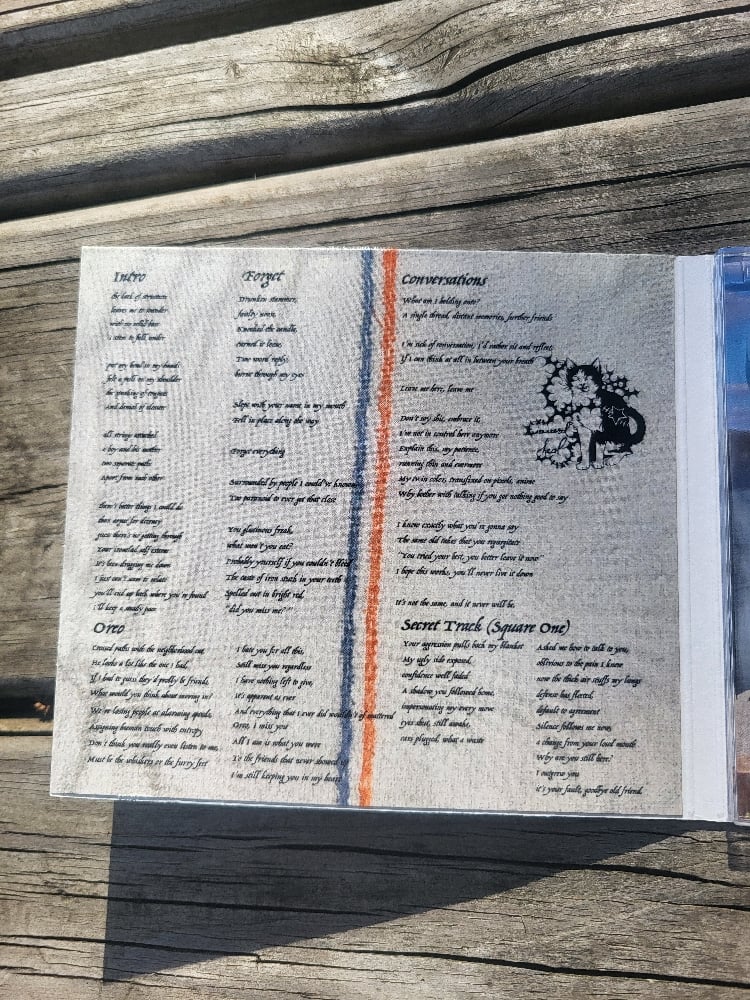 Intro
the lack of structure
leaves me to wander
with no solid base
i seem to fall under
put my head in my hands
felt a pull on my shoulder
the speaking of regrets
And denial of closure
all strings attached
a boy and his mother
two separate paths
apart from each other
there's better things I could do
than argue for decency
guess there's no getting through
Your inverted self esteem
It's been dragging me down
I just can't seem to relate
you'll end up back where you're found
i'll keep a steady pace
Forget
Drunken stammer,
faulty worn,
Knocked the candle,
turned it loose,
Two word reply
burnt through my eyes
Slept with your name in my mouth
Fell in place along the way
Forget everything
Surrounded by people I could've known
I'm paranoid to ever get that close
You gluttonous freak,
what won't you eat?
Probably yourself if you couldn't bleed
The taste of iron stuck in your teeth
Spelled out in bright red,
"did you miss me?"
Oreo
Crossed paths with the neighborhood cat
He looks a lot like the one i had
If I had to guess they'd prolly be friends
What would you think about moving in?
We're losing people at alarming speeds
Arguing human touch with entropy
Don't think you really even listen to me,
Must be the whiskers or the furry feet
I hate you for all this,
Still miss you regardless
I have nothing left to give,
it's apparent as ever
And everything that i ever did wouldn't of mattered
Oreo, I miss you
All I am is what you were
It's the friends that never showed up
I'm still keeping you in my heart
Conversations
What am I holding onto?
A single thread, distant memories, further friends
I'm sick of conversation, I'd rather sit and reflect,
If I can think at all in between your breath
Leave me here, leave me
Don't say shit, embrace it,
I'm not in control here anymore
Explain this, my patience,
running thin and outworn
My twin color, transfixed on pixels, anime
Why bother with talking if you got nothing good to say
I know exactly what you're gonna say
The same old takes that you regurgitate
"You tried your best, you better leave it now"
I hope this works, you'll never live it down
It's not the same, and it never will be,
Secret Track (Square One)
Your agression pulls back my blanket
My ugly side exposed,
confidence well faded
A shadow, you followed home,
impersonating my every move
eyes shut, still awake,
ears plugged, what a waste
Asked me how to talk to you,
oblivious to the pain i knew
now the thick air stuffs my lungs
defense has fleeted,
default to agreement
Silence follows me now,
a change from your loud mouth
Why am i still here?
I outgrew you
it's your fault, goodbye old friend.